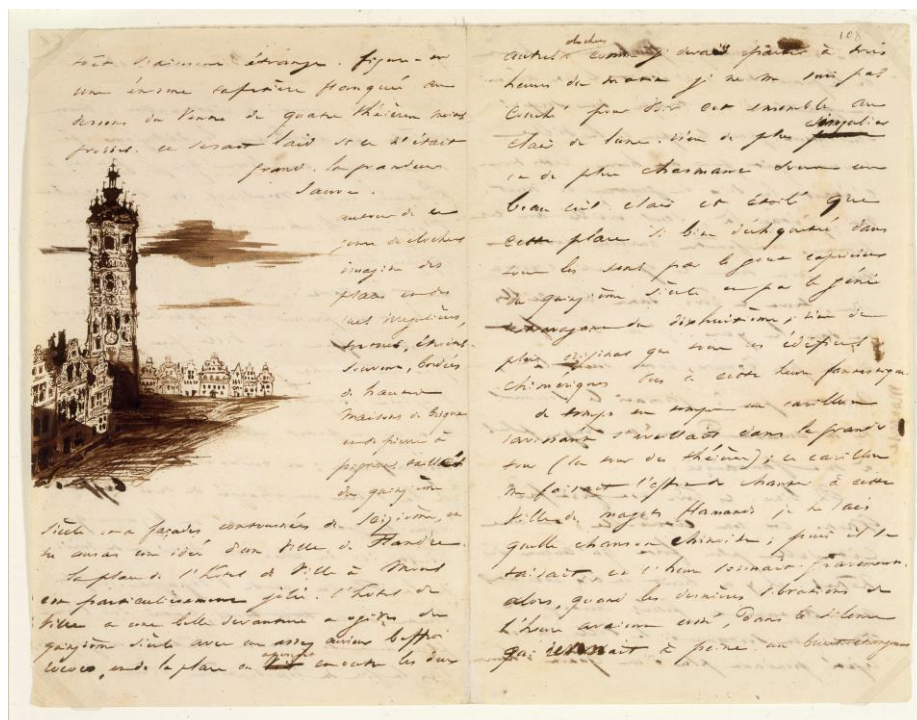 étrange. figure-toi
une énorme cafetière flanquée au
dessous du ventre de quatre théières moins
grosses. ce serait laid si ce n'était
grand. la grandeur
sauve.
autour de ce
genre de clochers
imagine des
places et des
rues irrégulières,
tortues, étroites
souvent, bordées
de hautes
maisons de brique
et de pierre à
pignons taillés
du quinzième
siècle et à façades contournées du seizième, et
tu auras une idée d'une ville de Flandre.
la place de l'hôtel de ville à Mons
est particulièrement jolie. l'hôtel de
ville a une belle devanture à ogives du
quinzième siècle avec un assez curieux beffroi
rococo, et de la place on aperçoit en outre les deux
108
autres clochers comme je devais partir à trois
heures du matin je ne me suis pas
couché pour voir cet ensemble au
clair de lune. rien de plus singulier
et de plus charmant sous un
beau ciel clair et étoilé que
cette place si bien déchiquetée dans
tous les sens par le goût capricieux
du quinzième siècle et par le génie
extravagant du dixhuitième ; rien de
plus original que tous ces édifices
chimériques vus à cette heure fantastique.
de temps en temps un carillon
ravissant s'éveillait dans la grande
tour (la tour des théières) ; ce carillon
me faisait l'effet de chanter à cette
ville de magots flamands je ne sais
quelle chanson chinoise ; puis il se
taisait, et l'heure sonnait gravement.
alors, quand les dernières vibrations de
l'heure avaient cessé, Dans le silence
qui revenait à peine un bruit étrangement